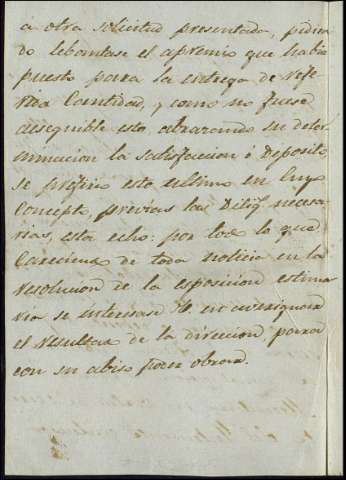 a otra solicitud presentada, pidien
do lebantase el apremio que habia
puesto para la entrega de refe
rida Cantidad, y como no fuese
asequible esto, abrazando su deter
minacion la satisfaccion ó Deposito,
se prefirio esto ultimo en cuyo
Concepto, previas las Dilig.s necesa
rias, esta echo: por todo lo qual
Careciendo de toda noticia en la
resolucion de la esposicion estima
ria se interesase V. en averiguar
el resultado de la direccion, para
con su abiso poder obrar.